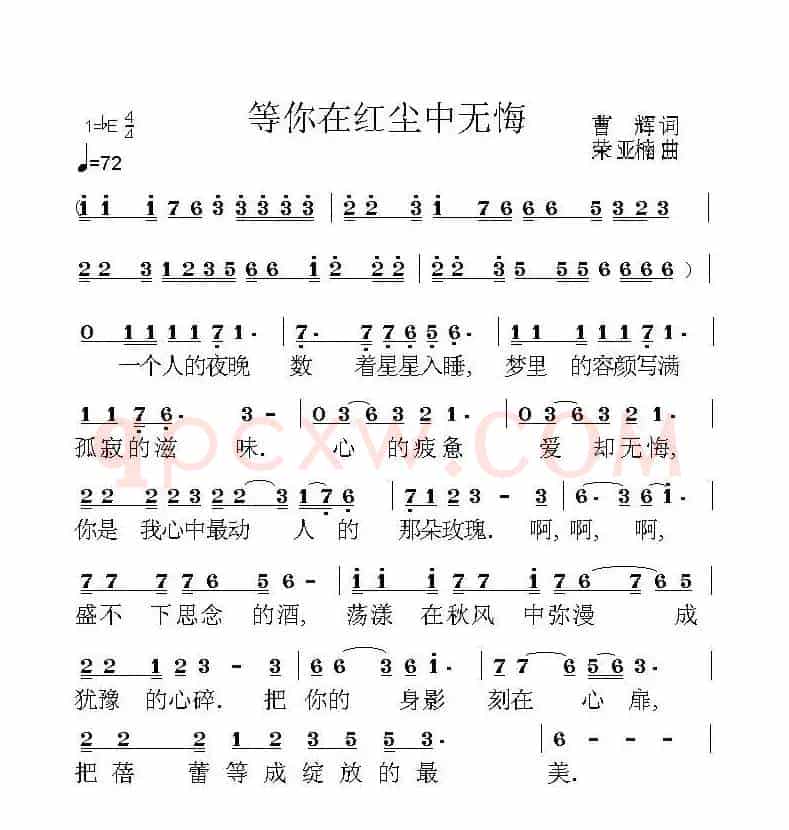 等你在红尘中无悔
1=♭E 4/4
曹 辉 词
荣亚楠 曲
♩=72
(i i i 7 6 3 3 3 3 3 | 2 2 3 i 7 6 6 6 5 3 2 3 |
2 2 3 1 2 3 5 6 6 i 2 2 2 | 2 2 3 5 5 5 6 6 6 6 ) |
0 1 1 1 1 7 1 · | 7 · 7 7 6 5 6 · | 1 1 1 1 7 1 · |
一个人的夜晚 数 着星星入睡, 梦里 的容颜写满
1 1 7 6 · 3 – | 0 3 6 3 2 1 · | 0 3 6 3 2 1 · |
孤寂的滋 味. 心 的疲惫 爱 却无悔,
2 2 2 2 3 2 2 3 1 7 6 | 7 1 2 3 – 3 | 6 · 3 6 i · |
你是 我心中最动 人 的 那朵玫瑰. 啊,啊, 啊,
7 7 7 7 6 5 6 – | i i i 7 7 i 7 6 7 6 5 |
盛不 下思念 的酒, 荡漾 在秋风 中弥漫 成
2 2 1 2 3 – 3 | 6 6 3 3 6 i · | 7 7 6 5 6 3 · |
犹豫 的心碎. 把 你的 身影 刻在 心 扉,
2 2 2 1 2 3 5 5 3 · | 6 – – – |
把蓓 蕾等成绽放的最 美.
qpcxw.COM